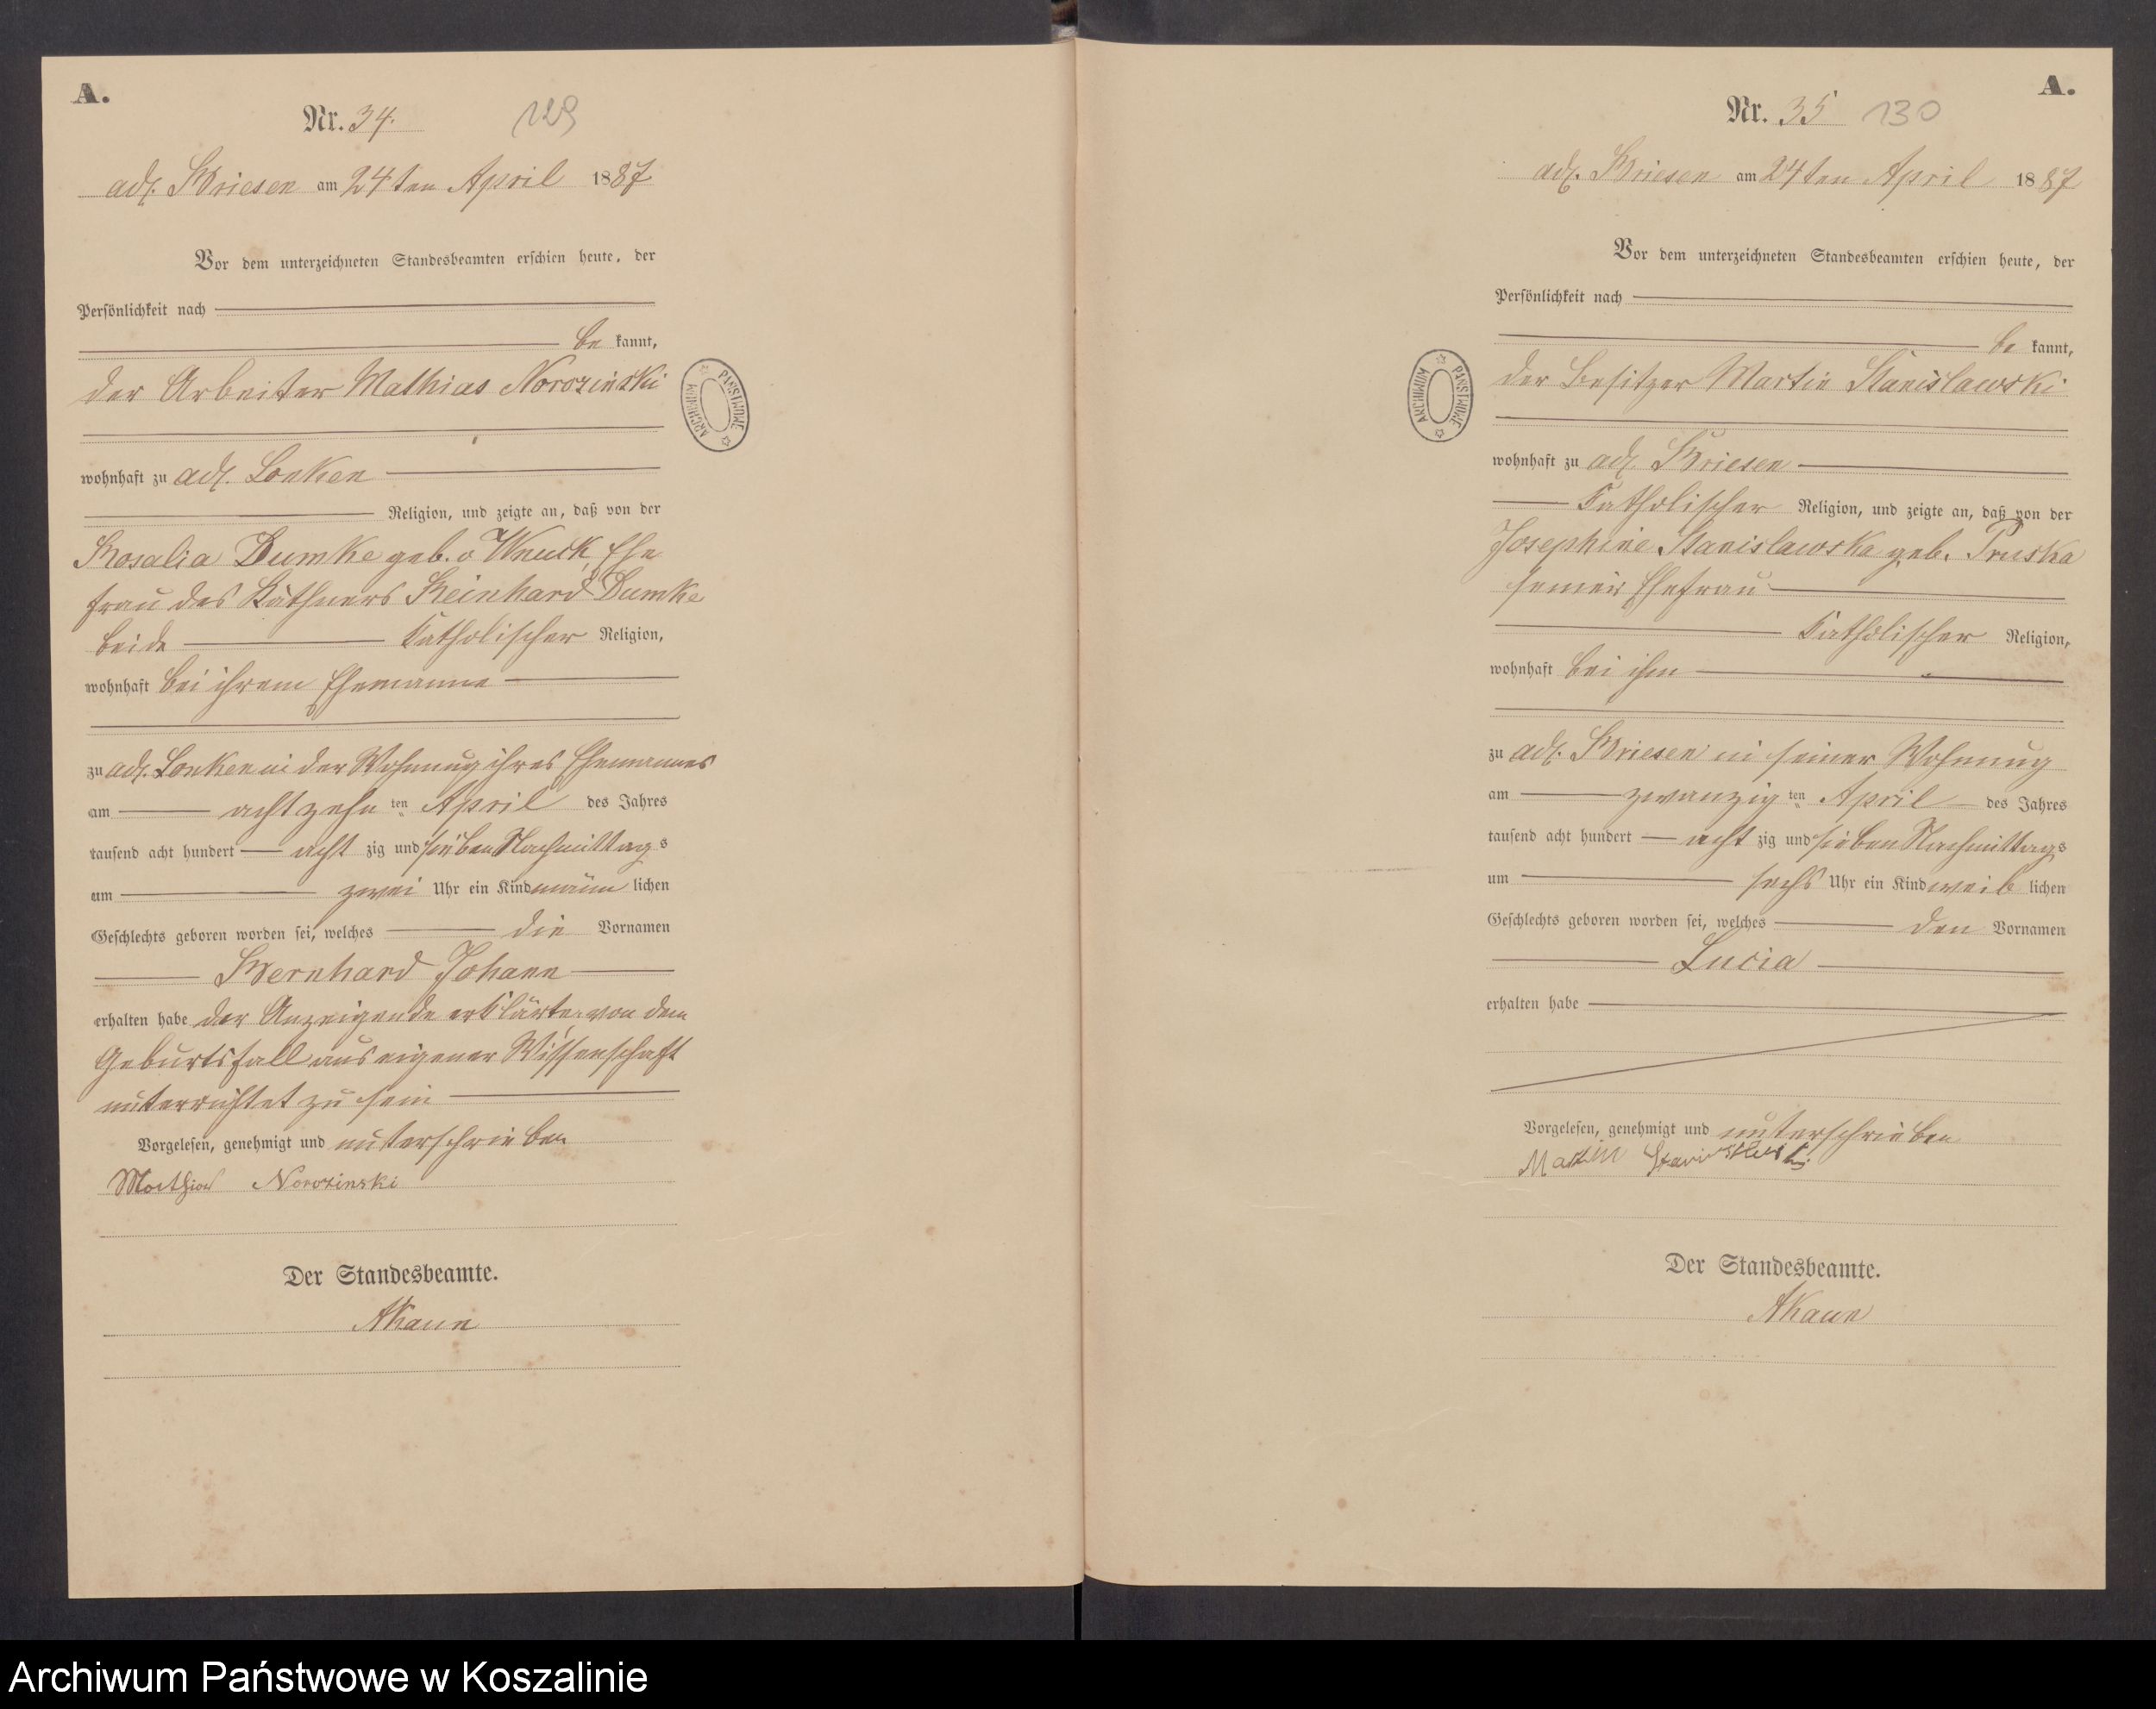 A.
Nr. 34.
129
adl. Briesen am 24ten April 1887
Vor dem unterzeichneten Standesbeamten erschien heute, der
Persönlichkeit nach
be kannt,
der Arbeiter Mathias Norozinski
wohnhaft zu adl. Lonken
Religion, und zeigte an, daß von der
Rosalia Dumke geb. v Wnuck, Ehe
frau des Käthners Reinhard Dumke
beide Katholischer Religion,
wohnhaft bei ihrem Ehemanne
zu adl. Lonken in der Wohnung ihres Ehemannes
am achtzehn ten April des Jahres
tausend acht hundert acht zig und sieben Nachmittags
um zwei Uhr ein Kind männ lichen
Geschlechts geboren worden sei, welches die Vornamen
Bernhard Johann
erhalten habe der Anzeigende erklärte von dem
Geburtsfall aus eigener Wissenschaft
unterrichtet zu sein
Vorgelesen, genehmigt und unterschrieben
Mathias Norozinski
Der Standesbeamte.
AKaun
ARCHIWUM PAŃSTWOWE
A.
Nr. 35
130
adl. Briesen am 24ten April 1887
Vor dem unterzeichneten Standesbeamten erschien heute, der
Persönlichkeit nach
be kannt,
der Besitzer Martin Stanislawski
wohnhaft zu adl. Briesen
Katholischer Religion, und zeigte an, daß von der
Josephine Stanislawska geb. Pruska
seiner Ehefrau
Katholischer Religion,
wohnhaft bei ihm
zu adl. Briesen in seiner Wohnung
am zwanzig ten April des Jahres
tausend acht hundert acht zig und sieben Nachmittags
um sechs Uhr ein Kind weib lichen
Geschlechts geboren worden sei, welches den Vornamen
Lucia
erhalten habe
Vorgelesen, genehmigt und unterschrieben
Martin Stanislawski
Der Standesbeamte.
AKaun
ARCHIWUM PAŃSTWOWE
Archiwum Państwowe w Koszalinie